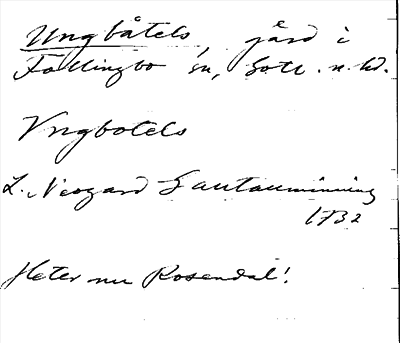 Ungbåtels, gård i
Follingbo sn, Gotl. n. hd.
Yngbotels
L. Neogard Gautauminning
1732
Heter nu Rosendal!